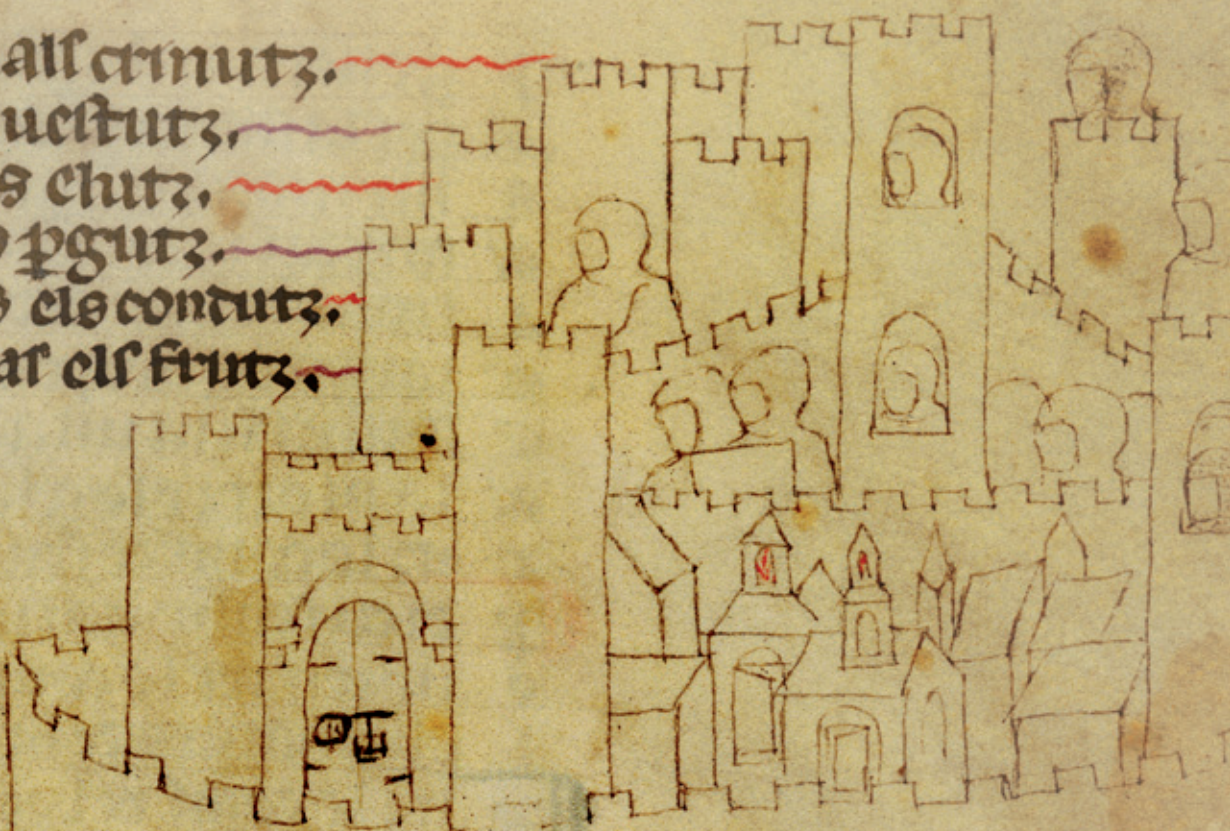 als crinutz.
uestutz.
s elutz.
ꝑgutz.
els condutz.
as els frutz.